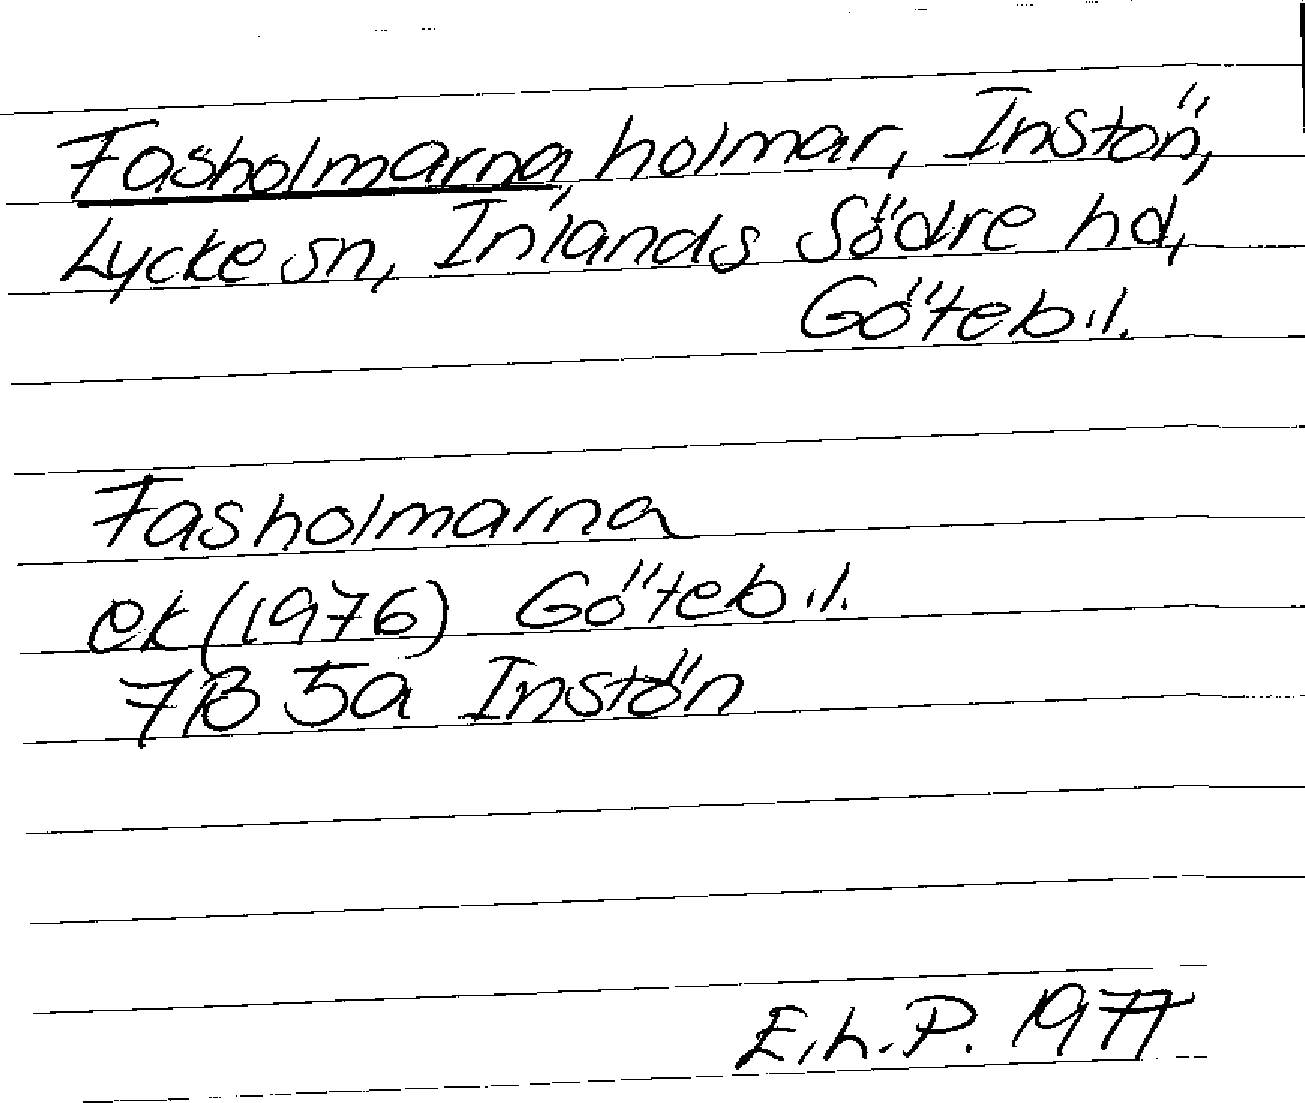 Fasholmarna, holmar, Instön,
Lycke sn, Inlands Södre hd,
Göteb.l.
Fasholmarna
ek (1976) Göteb.l.
7B 5a Instön
E.L.P. 1977